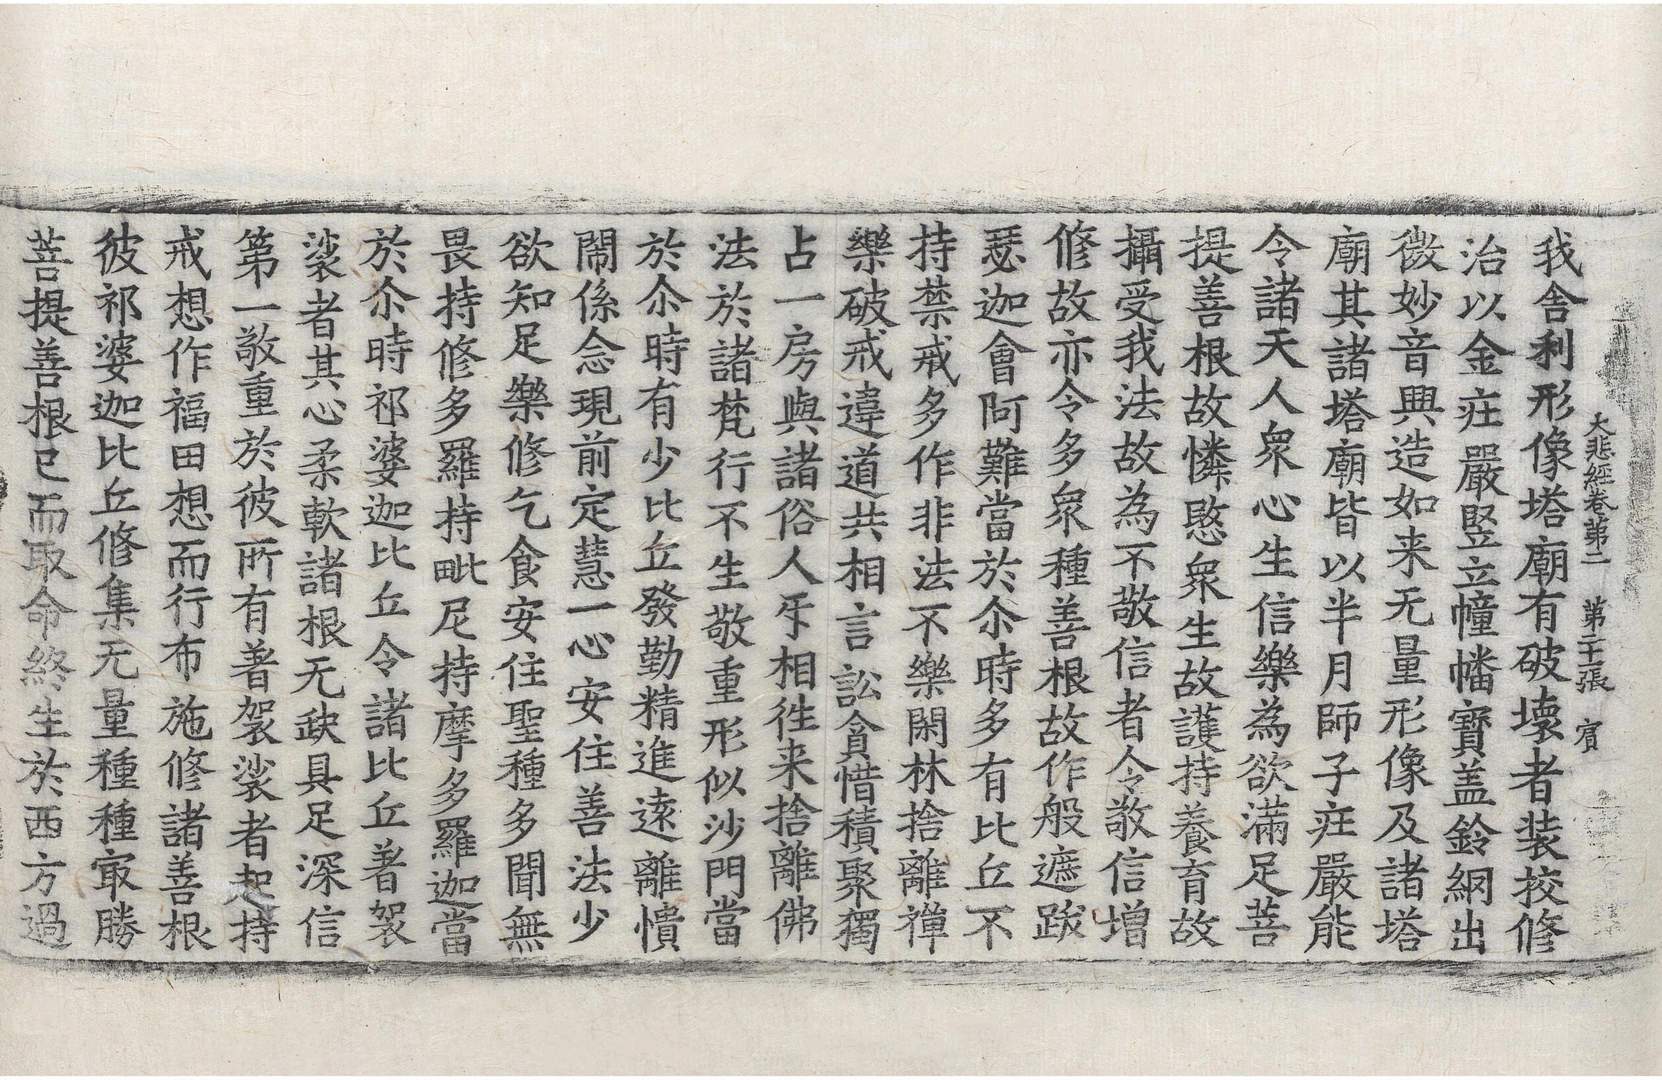 大悲經卷第二　第二十張　賓
我舍利形像塔廟有破壞者装挍修
治以金㽵嚴竪立幢幡寶盖鈴網出
微妙音興造如来无量形像及諸塔
廟其諸塔廟皆以半月師子㽵嚴能
令諸天人衆心生信樂為欲滿足菩
提善根故憐愍衆生故護持養育故
攝受我法故為不敬信者令敬信增
修故亦令多衆種善根故作般遮跋
瑟迦會阿難當於尒時多有比丘不
持禁戒多作非法不樂閑林捨離禪
樂破戒違道共相言訟貪惜積聚獨
占一房與諸俗人㸦相徃来捨離佛
法於諸梵行不生敬重形似沙門當
於尒時有少比丘發勤精進遠離憒
閙係念現前定慧一心安住善法少
欲知足樂修乞食安住聖種多聞無
畏持修多羅持毗尼持摩多羅迦當
於尒時祁婆迦比丘令諸比丘著袈
裟者其心柔軟諸根无缺具足深信
第一敬重於彼所有著袈裟者起持
戒想作福田想而行布施修諸善根
彼祁婆迦比丘修集无量種種㝡勝
菩提善根已而取命終生於西方過